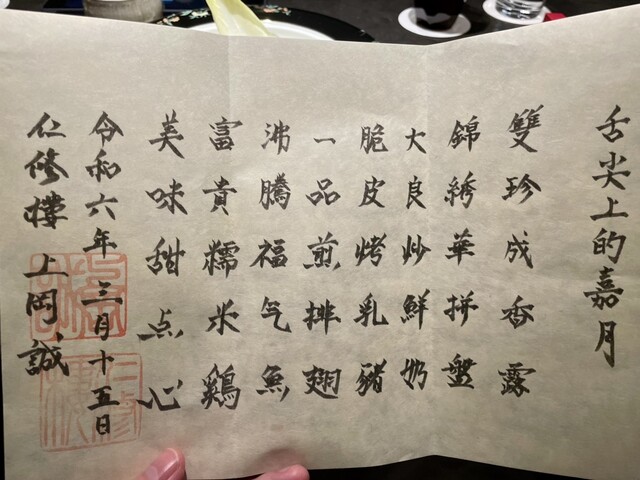 舌尖上的嘉月
雙珍成香露
錦綉華拼盤
大良炒鮮奶
脆皮烤乳豬
一品煎排翅
沸騰福气魚
富貴糯米鶏
美味甜点心
令和六年三月十五日
仁修樓 上岡誠